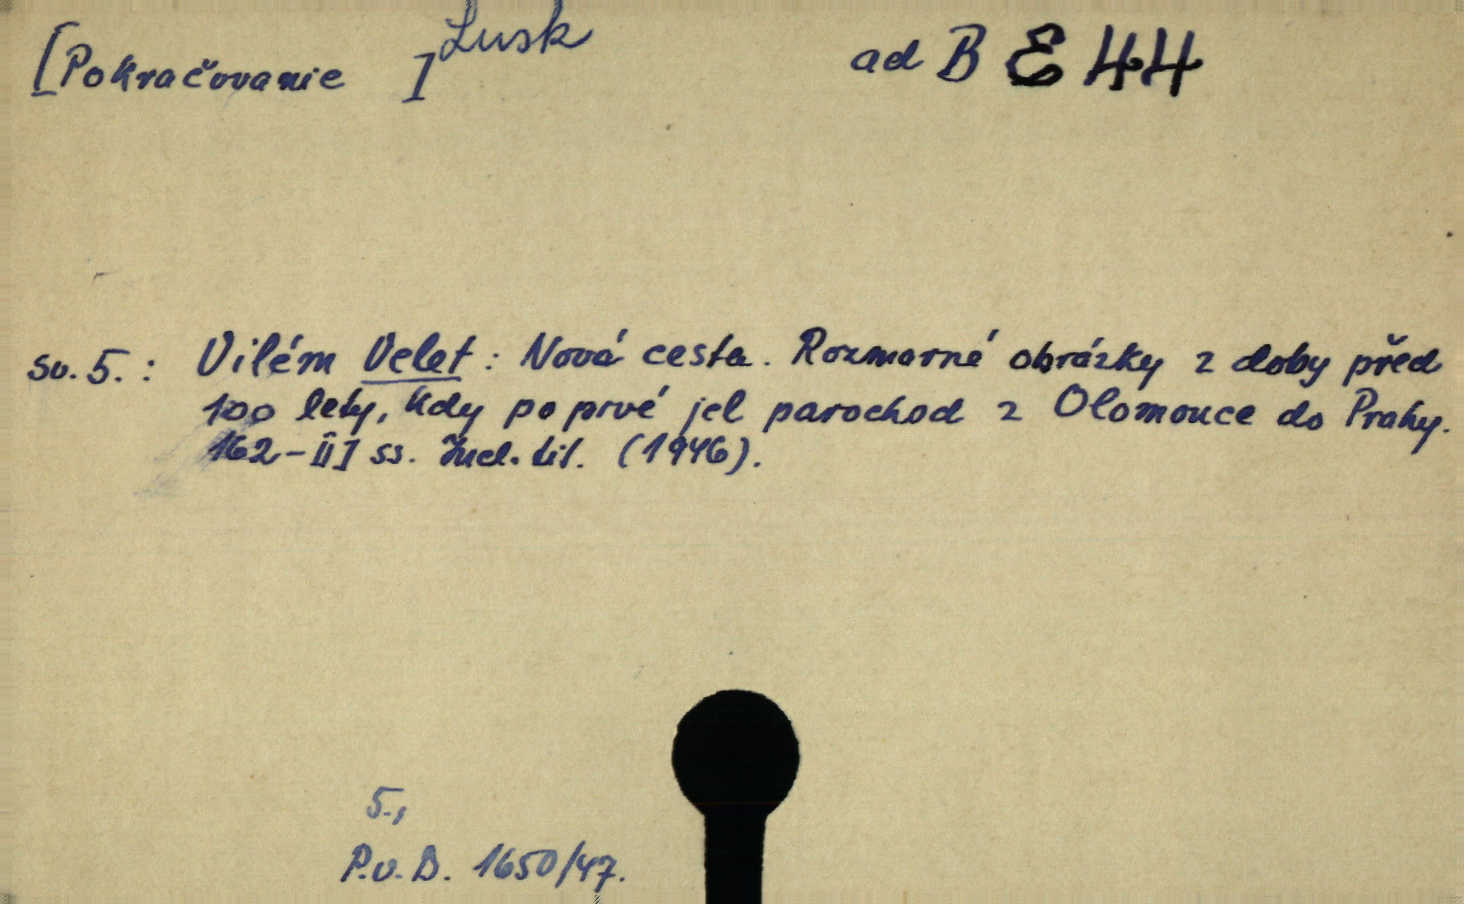 [Pokračovanie ] Lusk ad B E 44
sv. 5. : Vilém Velet : Nová cesta. Rozmarné obrázky z doby před
100 lety, kdy po prvé jel parochod z Olomouce do Prahy.
162-II] ss. Incl. tit. (1946).
5.,
P.v.D. 1650/47.